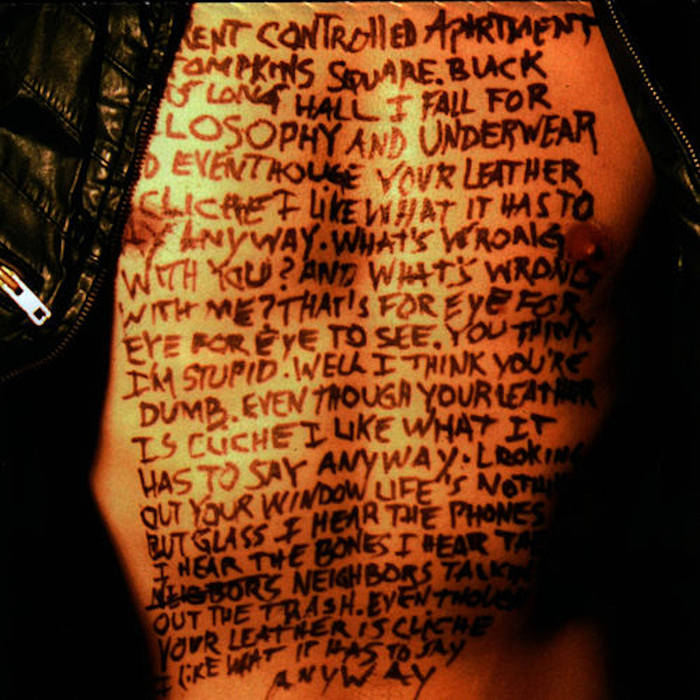 RENT CONTROllED APARTMENT
TOMPKINS SQUARE. BUCK
LONG HALL I FALL FOR
LOSOPHY AND UNDERWEAR
D EVENTHOUGE YOUR LEATHER
CLICHE I LIKE WHAT IT HAS TO
ANYWAY. WHAT'S WRONG
WITH YOU? AND WHAT'S WRONG
WITH ME? THAT'S FOR EYE FOR
EYE FOR EYE TO SEE. YOU THINK
I'M STUPID. WELL I THINK YOU'RE
DUMB. EVEN THOUGH YOUR LEATHER
IS CLICHE I LIKE WHAT IT
HAS TO SAY ANYWAY. LOOKING
OUT YOUR WINDOW LIFE'S NOTHIN
BUT GLASS I HEAR THE PHONES
I HEAR THE BONES I HEAR TA
NEIGBORS NEIGHBORS TALKIN
OUT THE TRASH. EVEN THOUGH
YOUR LEATHER IS CLICHE
I LIKE WHAT IT HAS TO SAY
ANYWAY